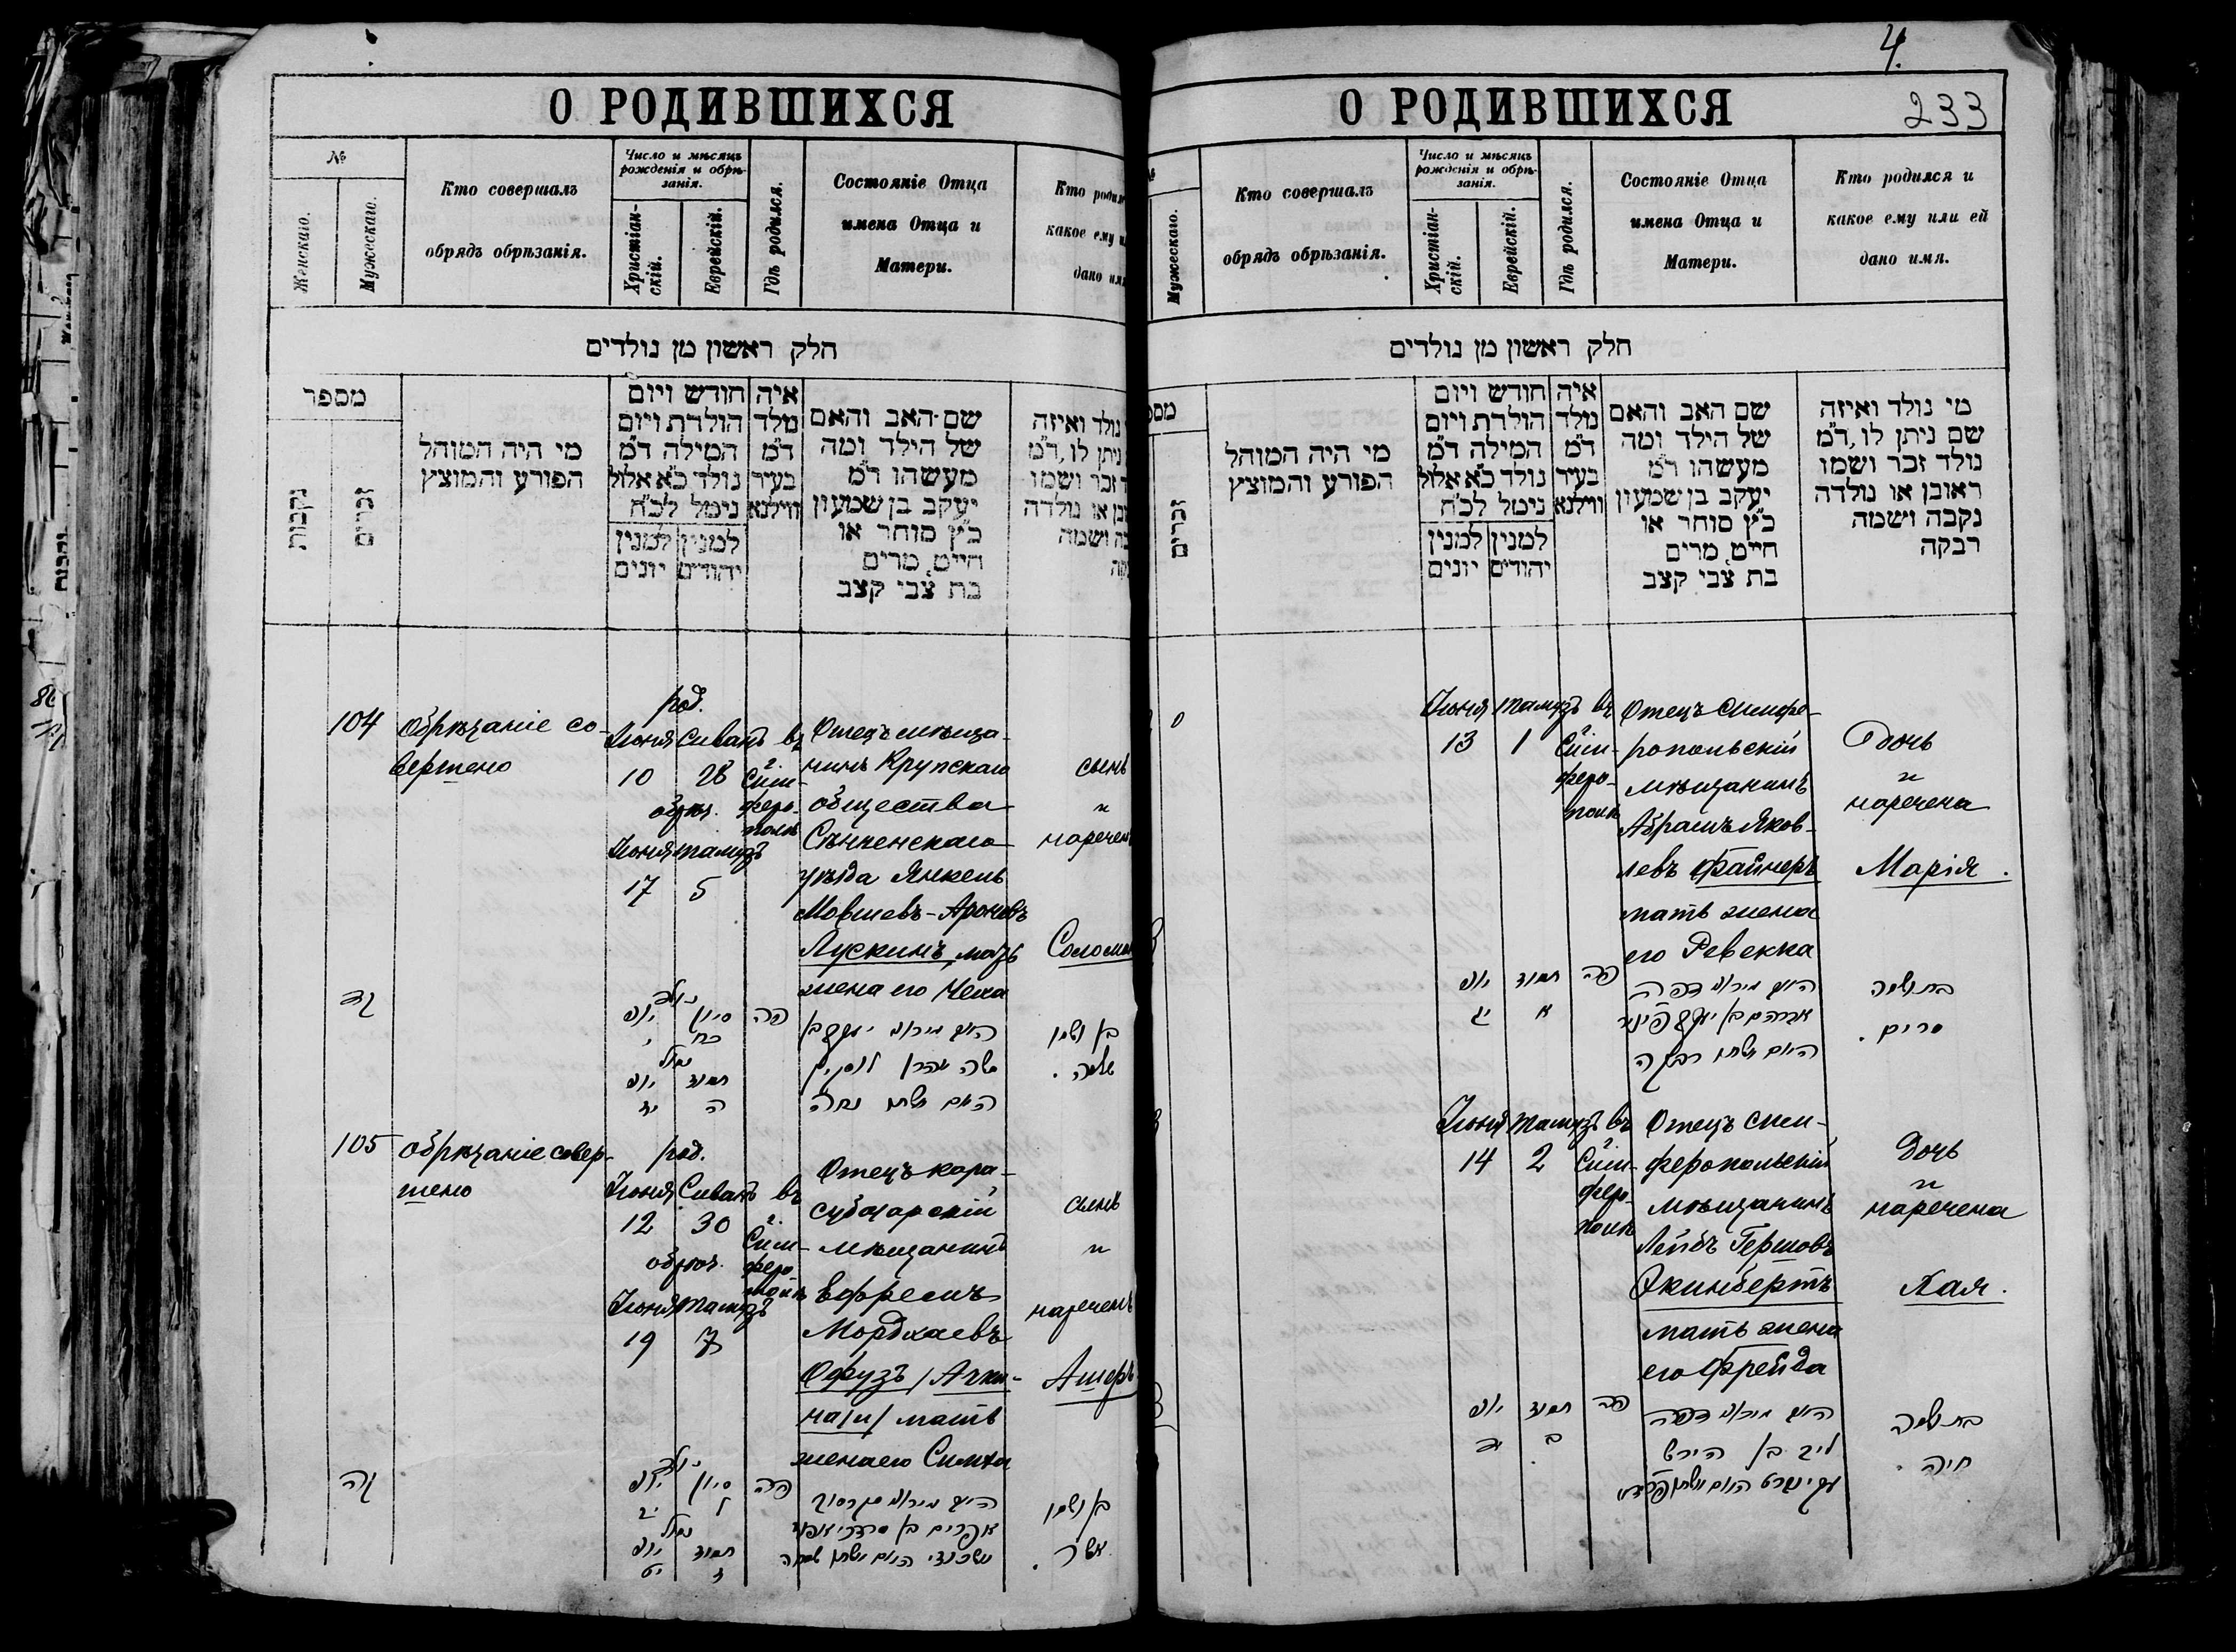 4.
О РОДИВШИХСЯ
№
Женскаго.
Мужескаго.
Кто совершалъ
обрядъ обрѣзанія.
Число и мѣсяцъ
рожденія и обрѣ-
занія.
Христіан-
скій.
Еврейскій.
Гдѣ родился.
Состояніе Отца
имена Отца и
Матери.
Кто
какое ему
дано
חלק ראשון מן נולדים
מספר
נקבות
זכרים
מי היה המוהל
הפורע והמוצץ
חודש ויום
הולדת ויום
המילה ד"מ
נולד כ"א אלול
נימל לכ"ח
למנין למנין
יהודים יונים
איה
נולד
ד"מ
בעיר
ווילנא
שם האב והאם
של הילד ומה
מעשהו ד"מ
יעקב בן שמעון
כ"ץ סוחר או
חייט, מרים
בת צבי קצב
נולד ואיזה
ניתן לו, ד"מ
זכר ושמו
או נולדה
ושמה
104
Обрѣзаніе со-
вершено
род.
Іюня Сиванъ
10 28
обрѣз.
Іюня Тамузъ
17 5
въ
г.
Сим-
феро-
полѣ
Отецъ мѣща-
нинъ Крупскаго
общества
Сѣнненскаго
уѣзда Янкель
Мовшевъ-Ароновъ
Лускинъ, мать
жена его Чена
сынъ
и
нареченъ
Соломон
קד
נולד
סיון יוני
כח י
נמול
תמוז יוני
ה יז
פה
משה אהרן לוסקין
בן ושמו
שלמה.
105
Обрѣзаніе совер-
шено
род.
Іюня Сиванъ
12 30
обрѣз.
Іюня Тамузъ
19 7
въ
г.
Сим-
феро-
полѣ
Отецъ кара-
субазарскій
мѣщанинъ
Ефремъ
Мордхаевъ
Офузъ /Ачки-
нази/ мать
жена его Симха
сынъ
и
нареченъ
Ашеръ
קה
נולד
סיון יוני
ל יב
נמול
תמוז יוני
ז יט
פה
אשכנזי האם ושמה שמחה
בן ושמו
אשר.
О РОДИВШИХСЯ
233
Мужескаго.
Кто совершалъ
обрядъ обрѣзанія.
Число и мѣсяцъ
рожденія и обрѣ-
занія.
Христіан-
скій.
Еврейскій.
Гдѣ родился.
Состояніе Отца
имена Отца и
Матери.
Кто родился и
какое ему или ей
дано имя.
חלק ראשון מן נולדים
זכרים
מי היה המוהל
הפורע והמוצץ
חודש ויום
הולדת ויום
המילה ד"מ
נולד כ"א אלול
נימל לכ"ח
למנין למנין
יהודים יונים
איה
נולד
ד"מ
בעיר
ווילנא
שם האב והאם
של הילד ומה
מעשהו ד"מ
יעקב בן שמעון
כ"ץ סוחר או
חייט, מרים
בת צבי קצב
מי נולד ואיזה
שם ניתן לו, ד"מ
נולד זכר ושמו
ראובן או נולדה
נקבה ושמה
רבקה
Іюня Тамузъ
13 1
въ
г.
Сим-
феро-
полѣ
Отецъ симфе-
ропольскій
мѣщанинъ
Абрамъ Яков-
левъ Файнеръ
мать жена
его Ревекка
Дочь
и
наречена
Марія.
תמוז יוני
א יג
פה
אברהם בן יעקב פיינער
האם ושמה רבקה
בת ושמה
מרים.
Іюня Тамузъ
14 2
въ
г.
Сим-
феро-
полѣ
Отецъ сим-
феропольскій
мѣщанинъ
Лейбъ Гершовъ
Экинбертъ
мать жена
его Фрейда
Дочь
и
наречена
Хая.
תמוז יוני
ב יד
פה
ליב בן הירש
בת ושמה
חיה.